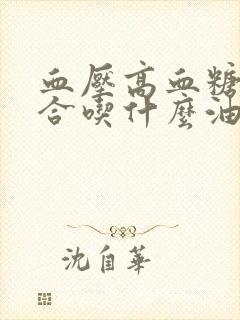 血壓高血糖
合喫什麼油
沈自華